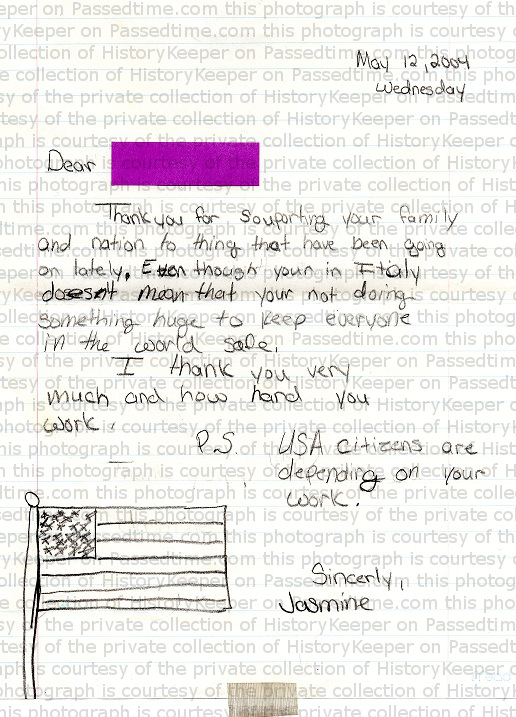 May 12, 2004
Wednesday
Dear
Thank you for souporting your family
and nation to thing that have been going
on lately. Even though youn in Italy
doesn't mean that your not doing
something huge to keep everyone
in the world safe.
I thank you very
much and how hard you
work.
P.S USA citizens are
depending on your
work.
Sincerly,
Jasmine